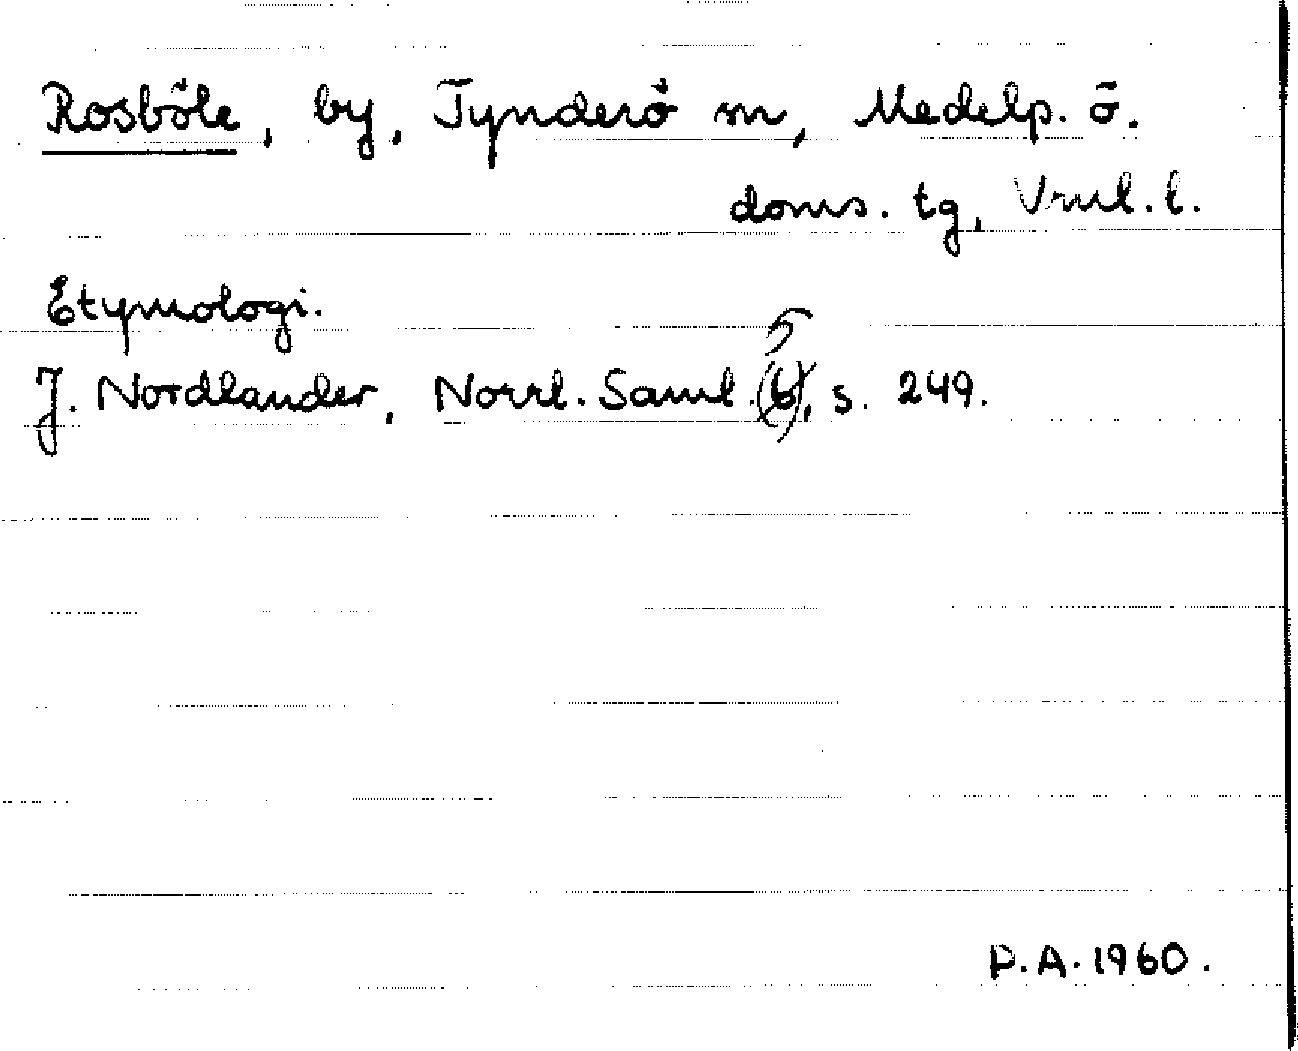 Rosböle, by, Tynderö sn, Medelp. ö.
doms. tg, Vnul. l.
Etymologi.
J. Nordlander, Norrl. Saml. (6) 5, s. 249.
P.A. 1960.